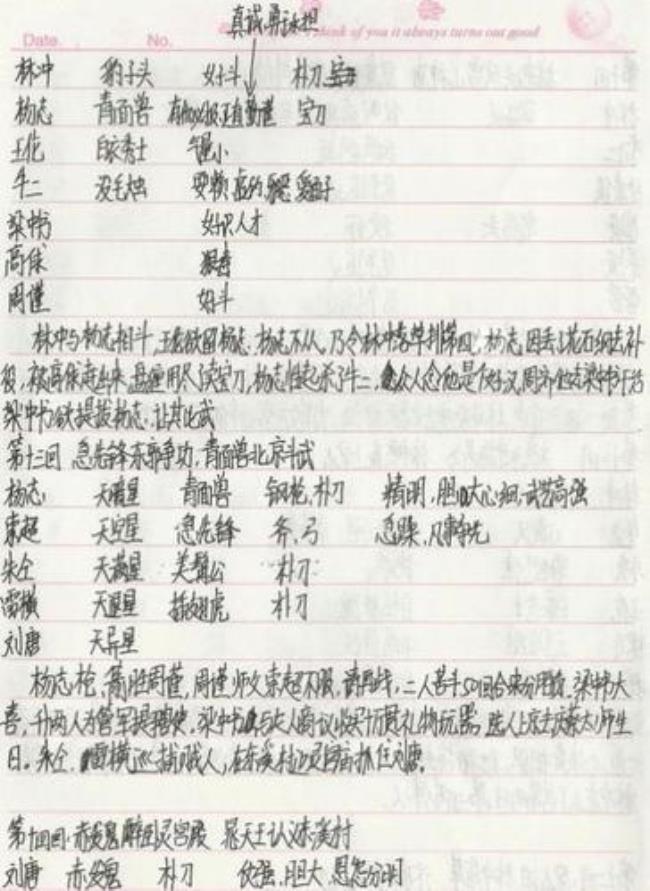 真诚勇于承担
Date. No. think of you it always turns out good
林冲 豹子头 好斗 朴刀
杨志 青面兽 宝刀
王伦 白衣秀士 气量小
牛二 没毛
梁中书 好识人才
高俅
周谨 好斗
林冲与杨志相斗,王伦欲留杨志,杨志不从,乃令林冲落草排第四,杨志因丢失花石纲去补
役,被高俅赶出来,卖宝刀,杨志性起杀牛二,众人念他是个好汉
梁中书欲提拔杨志,让其比武
第十三回 急先锋东郭争功,青面兽北京斗武
杨志 青面兽 钢枪,朴刀 精明,胆大心细,武艺高强
索超 天空星 急先锋 斧,弓 急躁,凡事争先
朱仝 天满星 美髯公 朴刀
雷横 天退星 插翅虎 朴刀
刘唐 天异星
杨志枪、箭胜周谨,周谨师父索超不服,请再战,二人苦斗50回合未分胜负,梁中书大
喜,升两人为管军提辖使,梁中书与夫人商议收买十万贯礼物玩器,选人上京去庆蔡太师生
日。朱仝、雷横巡捕贼人,在东溪村边灵官庙抓住刘唐.
第十四回 赤发鬼醉卧灵官殿 晁天王认义东溪村
刘唐 赤发鬼 朴刀 倔强,胆大 恩怨分明